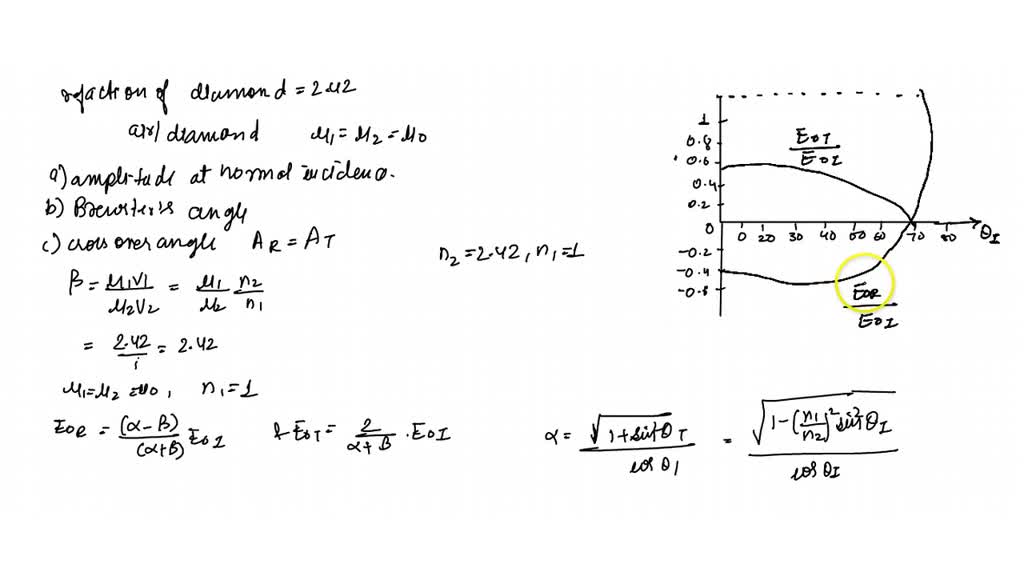 refaction of diamond = 2.42
air/diamond μ₁ = μ₂ = μ₀
a) amplitude at normal incidence.
b) Brewter's angle
c) cross over angle A_R = A_T
n₂ = 2.42, n₁ = 1
β = μ₁V₁/μ₂V₂ = μ₁/μ₂ n₂/n₁
= 2.42/1 = 2.42
μ₁ = μ₂ = μ₀, n₁ = 1
E_OR = (α - β)/(α + β) E_OI & E_OT = 2/(α + β) . E_OI
α = √(1 + sin²θ_T)/cos θ_I = √(1 - (n₁/n₂)² sin²θ_I)/cos θ_I
1
0.8
0.6
0.4
0.2
0
-0.2
-0.4
-0.8
0 20 30 40 50 60 70 80 θ_I
E_OT/E_OI
E_OR/E_OI